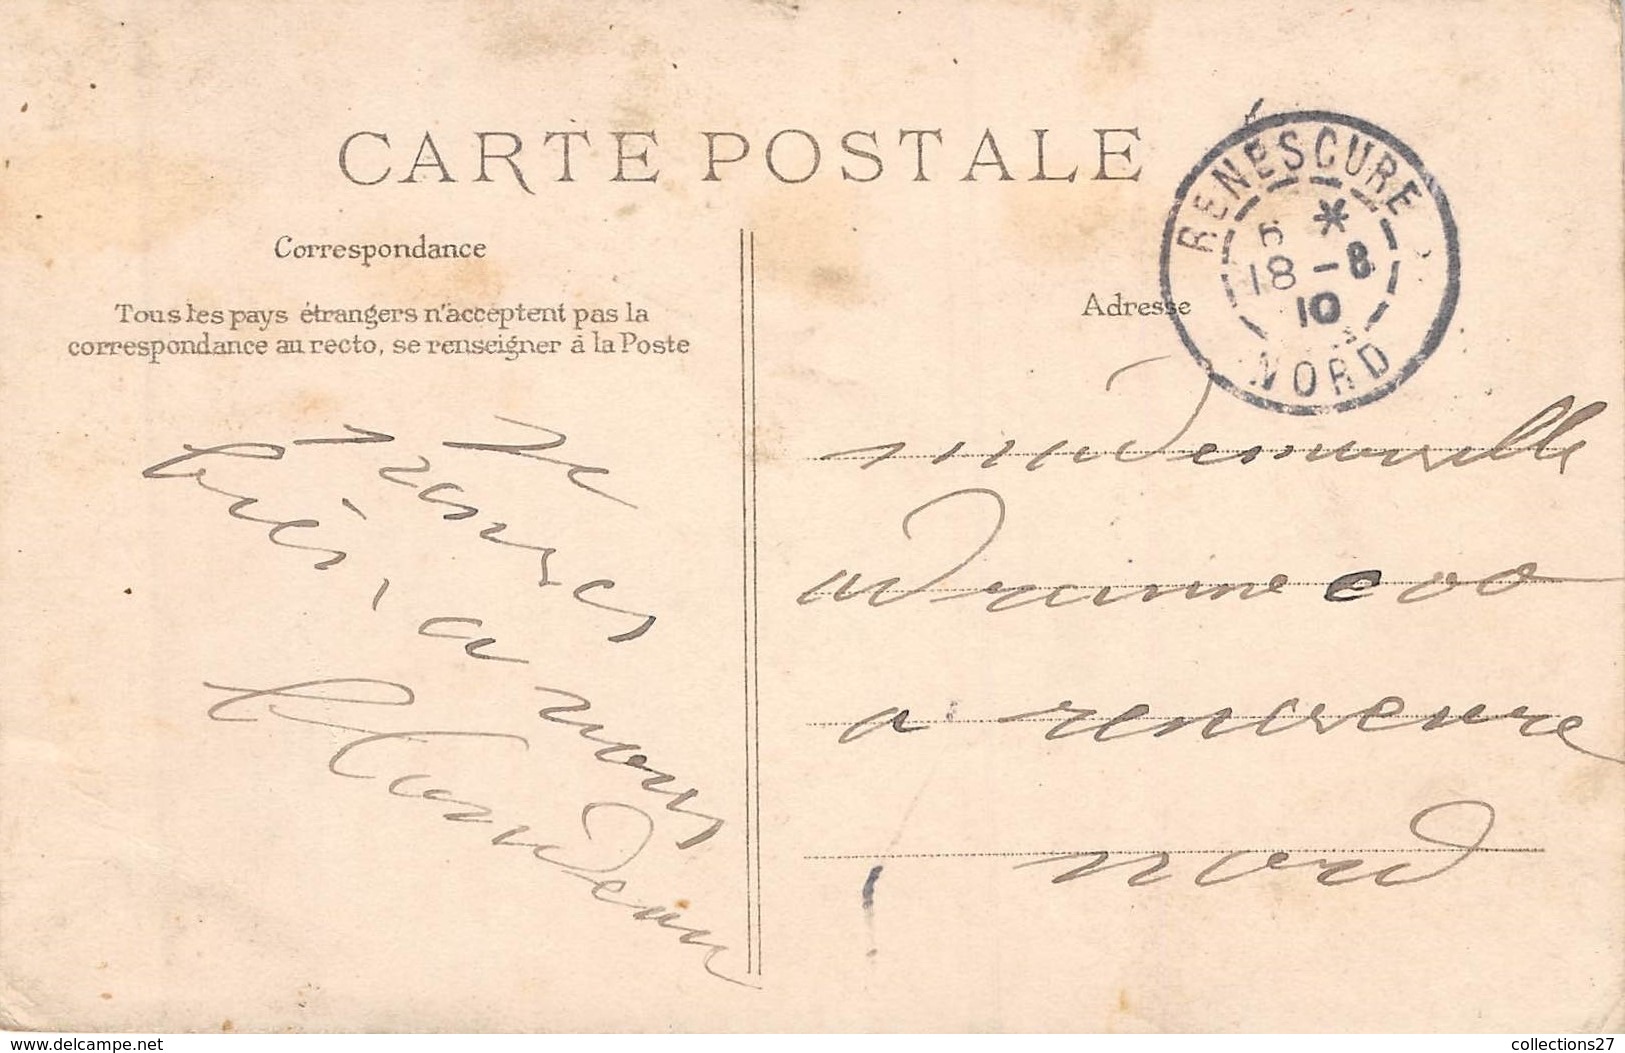 CARTE POSTALE
Correspondance
Tous les pays étrangers n'acceptent pas la
correspondance au recto, se renseigner à la Poste
Je
penses
bien, a vous
Adresse
RENESCURE
5 *
18 - 8
10
NORD
mademoiselle
adrianne
a renescure
nord
www.delcampe.net
collections27